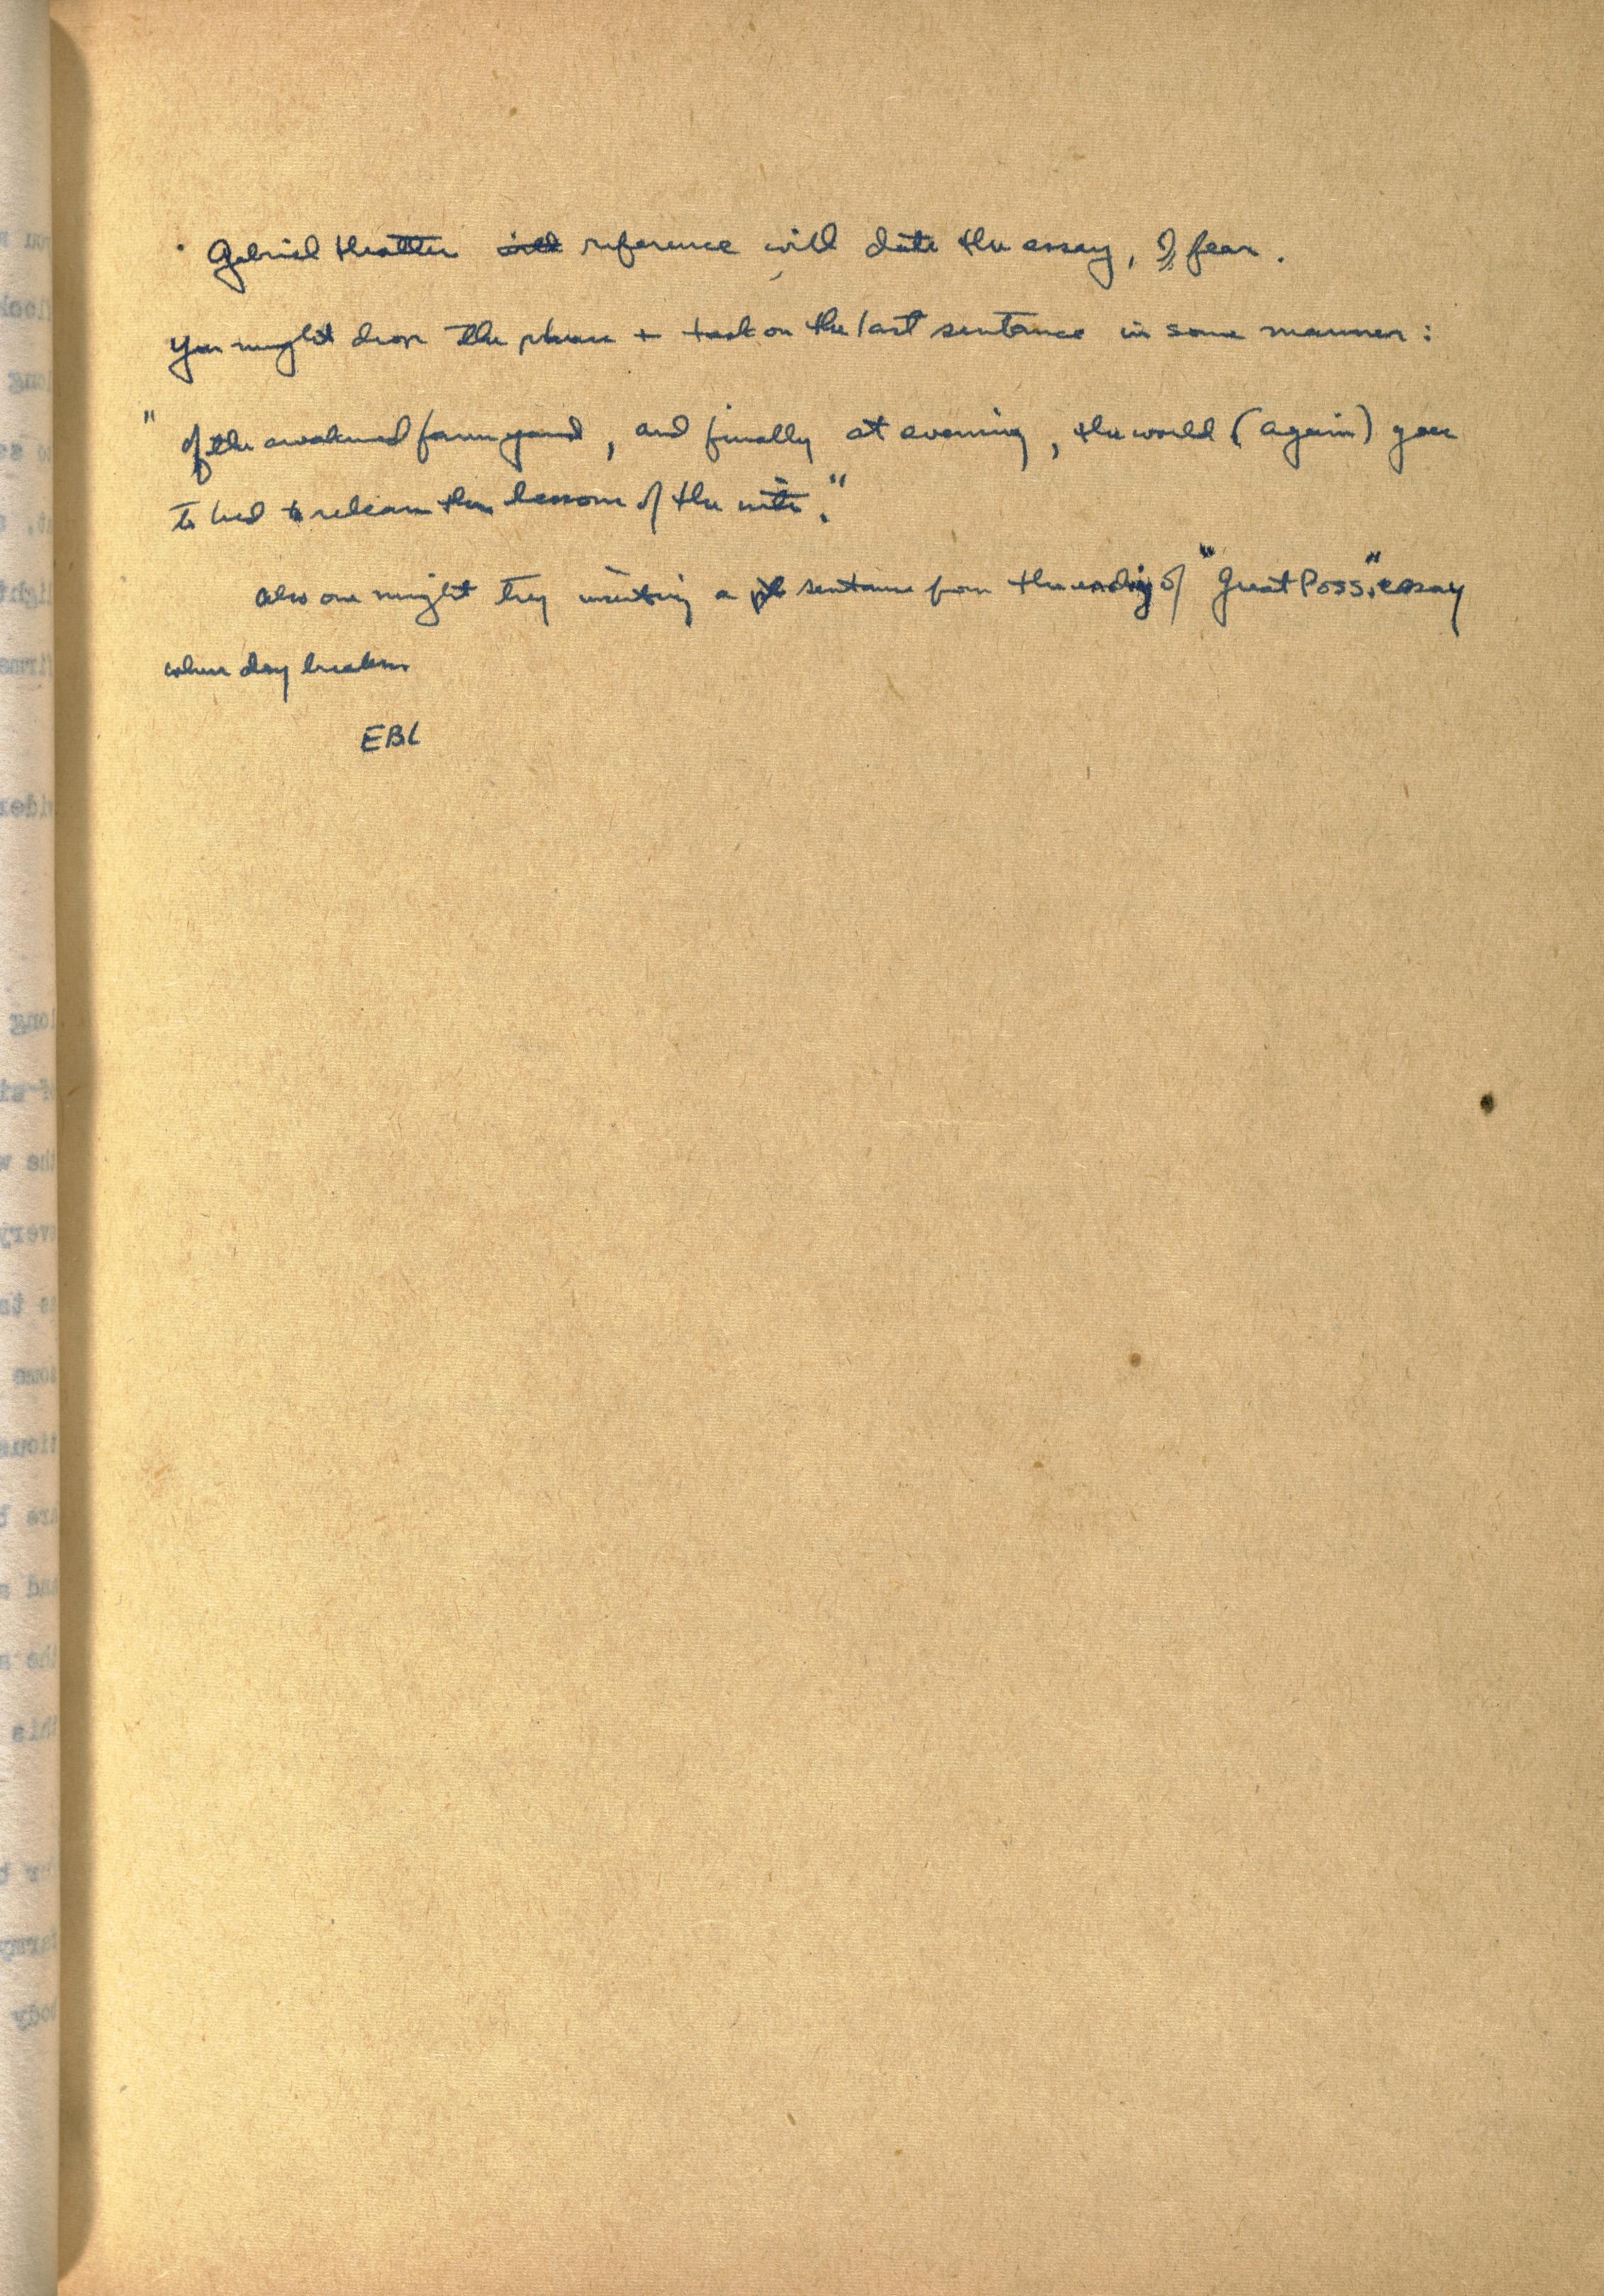 · Gabriel Heatter will reference will date the essay, I fear.
You might drop the phrase + tack on the last sentence in some manner:
" of the awakened farmyard, and finally at evening, the world (again) goes
to bed to relearn the lessons of the nite."
Also one might try inserting a sentence from the ending of "Great Poss." essay
where day breaks.
EBL